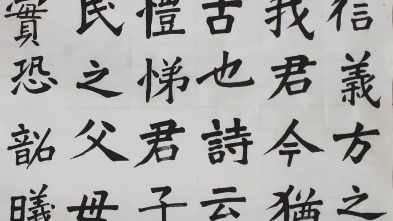 信義方之
我君今猶
古也詩云
愷悌君子
民之父母
實恐韶曦